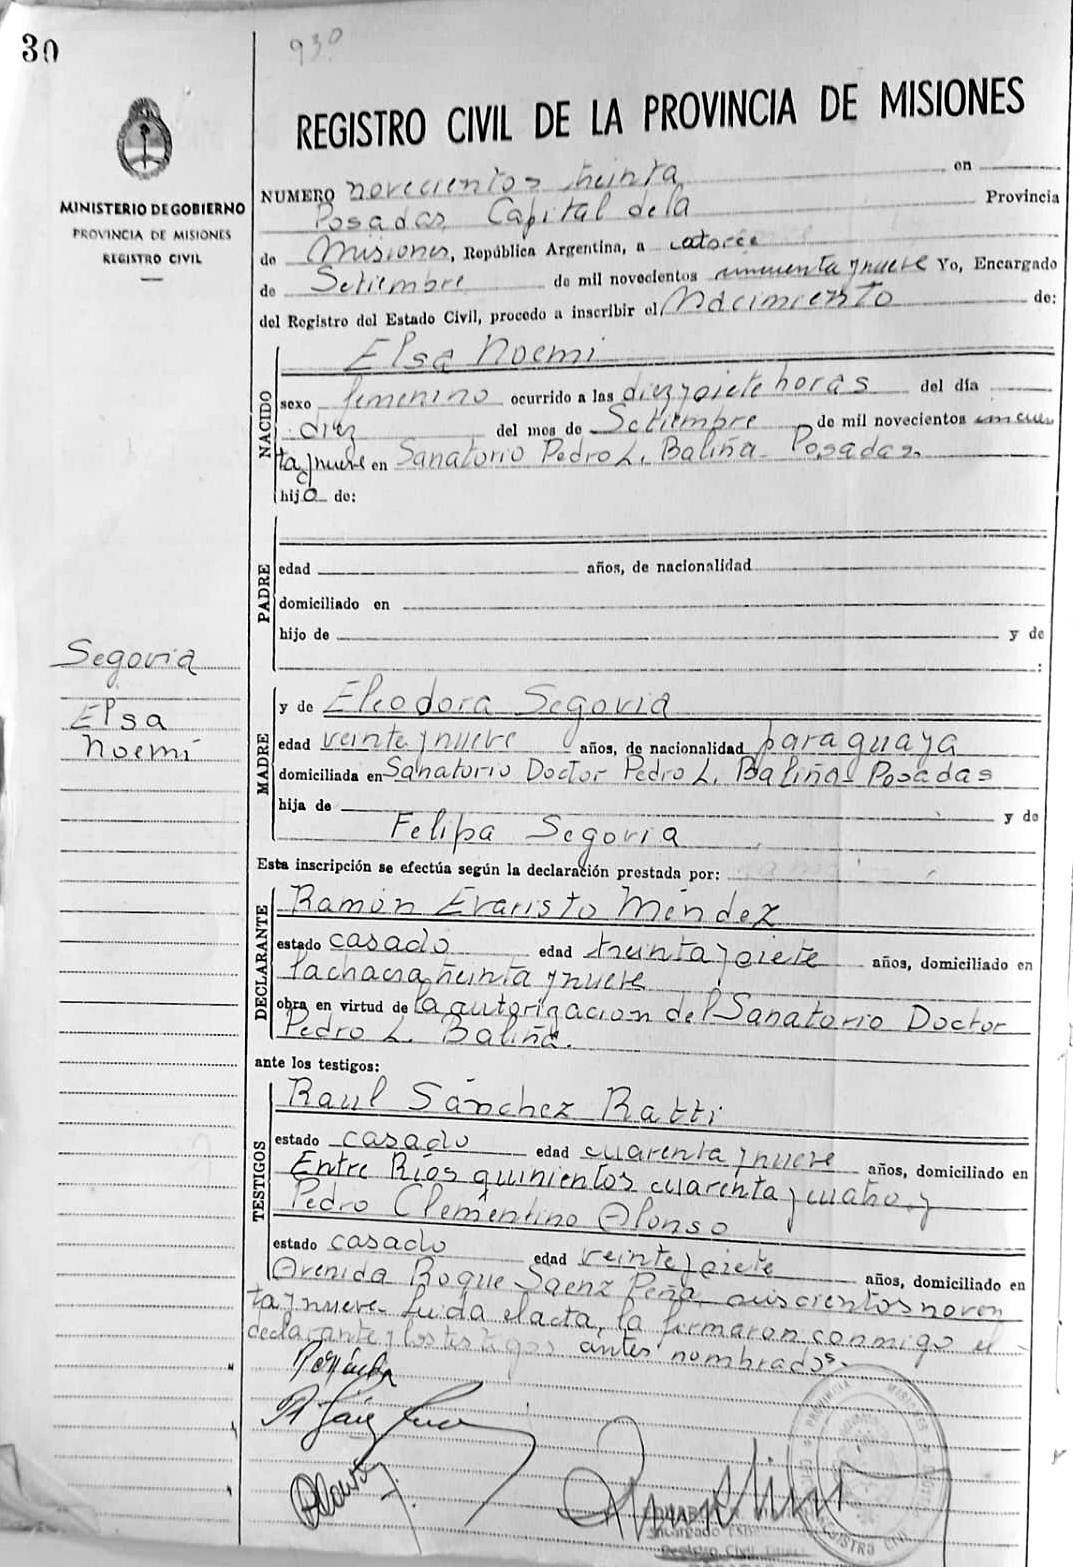 30
930
REGISTRO CIVIL DE LA PROVINCIA DE MISIONES
MINISTERIO DE GOBIERNO
PROVINCIA DE MISIONES
REGISTRO CIVIL
NUMERO novecientos treinta en
Posadas, Capital de la Provincia
de Misiones, República Argentina, a catorce
de Setiembre de mil novecientos cincuenta y nueve Yo, Encargado
del Registro del Estado Civil, procedo a inscribir el Nacimiento de:
NACIDO
Elsa Noemi
sexo femenino ocurrido a las diez y siete horas del día
diez del mes de Setiembre de mil novecientos cincuen
ta y nueve en Sanatorio Pedro L. Baliña - Posadas.
hija de:
PADRE
edad años, de nacionalidad
domiciliado en
hijo de y de
:
Segovia
Elsa
Noemí
MADRE
y de Eleodora Segovia
edad veinte y nueve años, de nacionalidad paraguaya
domiciliada en Sanatorio Doctor Pedro L. Baliña - Posadas
hija de y de
Felipa Segovia
Esta inscripción se efectúa según la declaración prestada por:
DECLARANTE
Ramón Evaristo Méndez
estado casado edad treinta y siete años, domiciliado en
La chacra treinta y nueve
obra en virtud de la autorizacion del Sanatorio Doctor
Pedro L. Baliña.
ante los testigos:
TESTIGOS
Raul Sánchez Ratti
estado casado edad cuarenta y nueve años, domiciliado en
Entre Ríos quinientos cuarenta y cuatro y
Pedro Clementino Alonso
estado casado edad veinte y siete años, domiciliado en
Avenida Roque Saenz Peña seiscientos noven
ta y nueve - Leida el acta, la firmaron conmigo el
declarante y los testigos antes nombrados.
PROVINCIA MISIONES
REGISTRO CIVIL
Encargado
Registro Civil